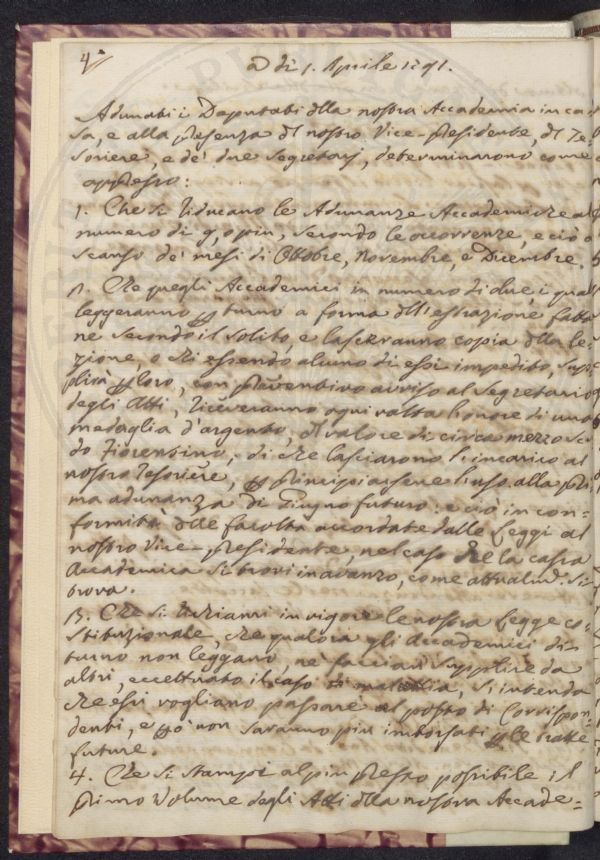 4.
A dì 1. Aprile 1791.
Adunati i Deputati dlla nostra Accademia in ca-
sa, e alla presenza dl nostro Vice-presidente, dl Te-
soriere, e de' due Segretarj, determinarono come
appresso:
1. Che si riducano le Adunanze Accademiche al
numero di 9, o piu, secondo le occorrenze, e ciò a
scanso de' mesi di Ottobre, Novembre, e Dicembre.
2. Che quegli Accademici in numero di due, i quali
leggeranno p turno a forma dll'estrazione fatta-
ne secondo il solito e lasceranno copia dlla le-
zione, o chi essendo alcuno di essi impedito, sup-
plirà p loro, con preventivo avviso al Segretario
degli Atti, riceveranno ogni volta l'onore di una
medaglia d'argento, dl valore di circa mezzo scu-
do Fiorentino, di che lasciarono l'incarico al
nostro Tesoriere, p principiarsene l'uso alla pri-
ma adunanza di Giugno futuro: e ciò in con-
formità dlle facoltà accordate dalle Leggi al
nostro Vice-presidente, nel caso che la cassa
Accademica si trovi in avanzo, come attualm. si
trova.
3. Che si richiami in vigore la nostra Legge co-
stituzionale, che qualora gli Accademici di
turno non leggano, ne facciano supplire da
altri, eccettuato il caso di malattia, s'intenda
che essi vogliano passare al posto di Corrispon-
denti, e pò non saranno piu imborsati p le tratte
future.
4. Che si stampi al piu presto possibile il
primo Volume degli Atti dlla nostra Accade-